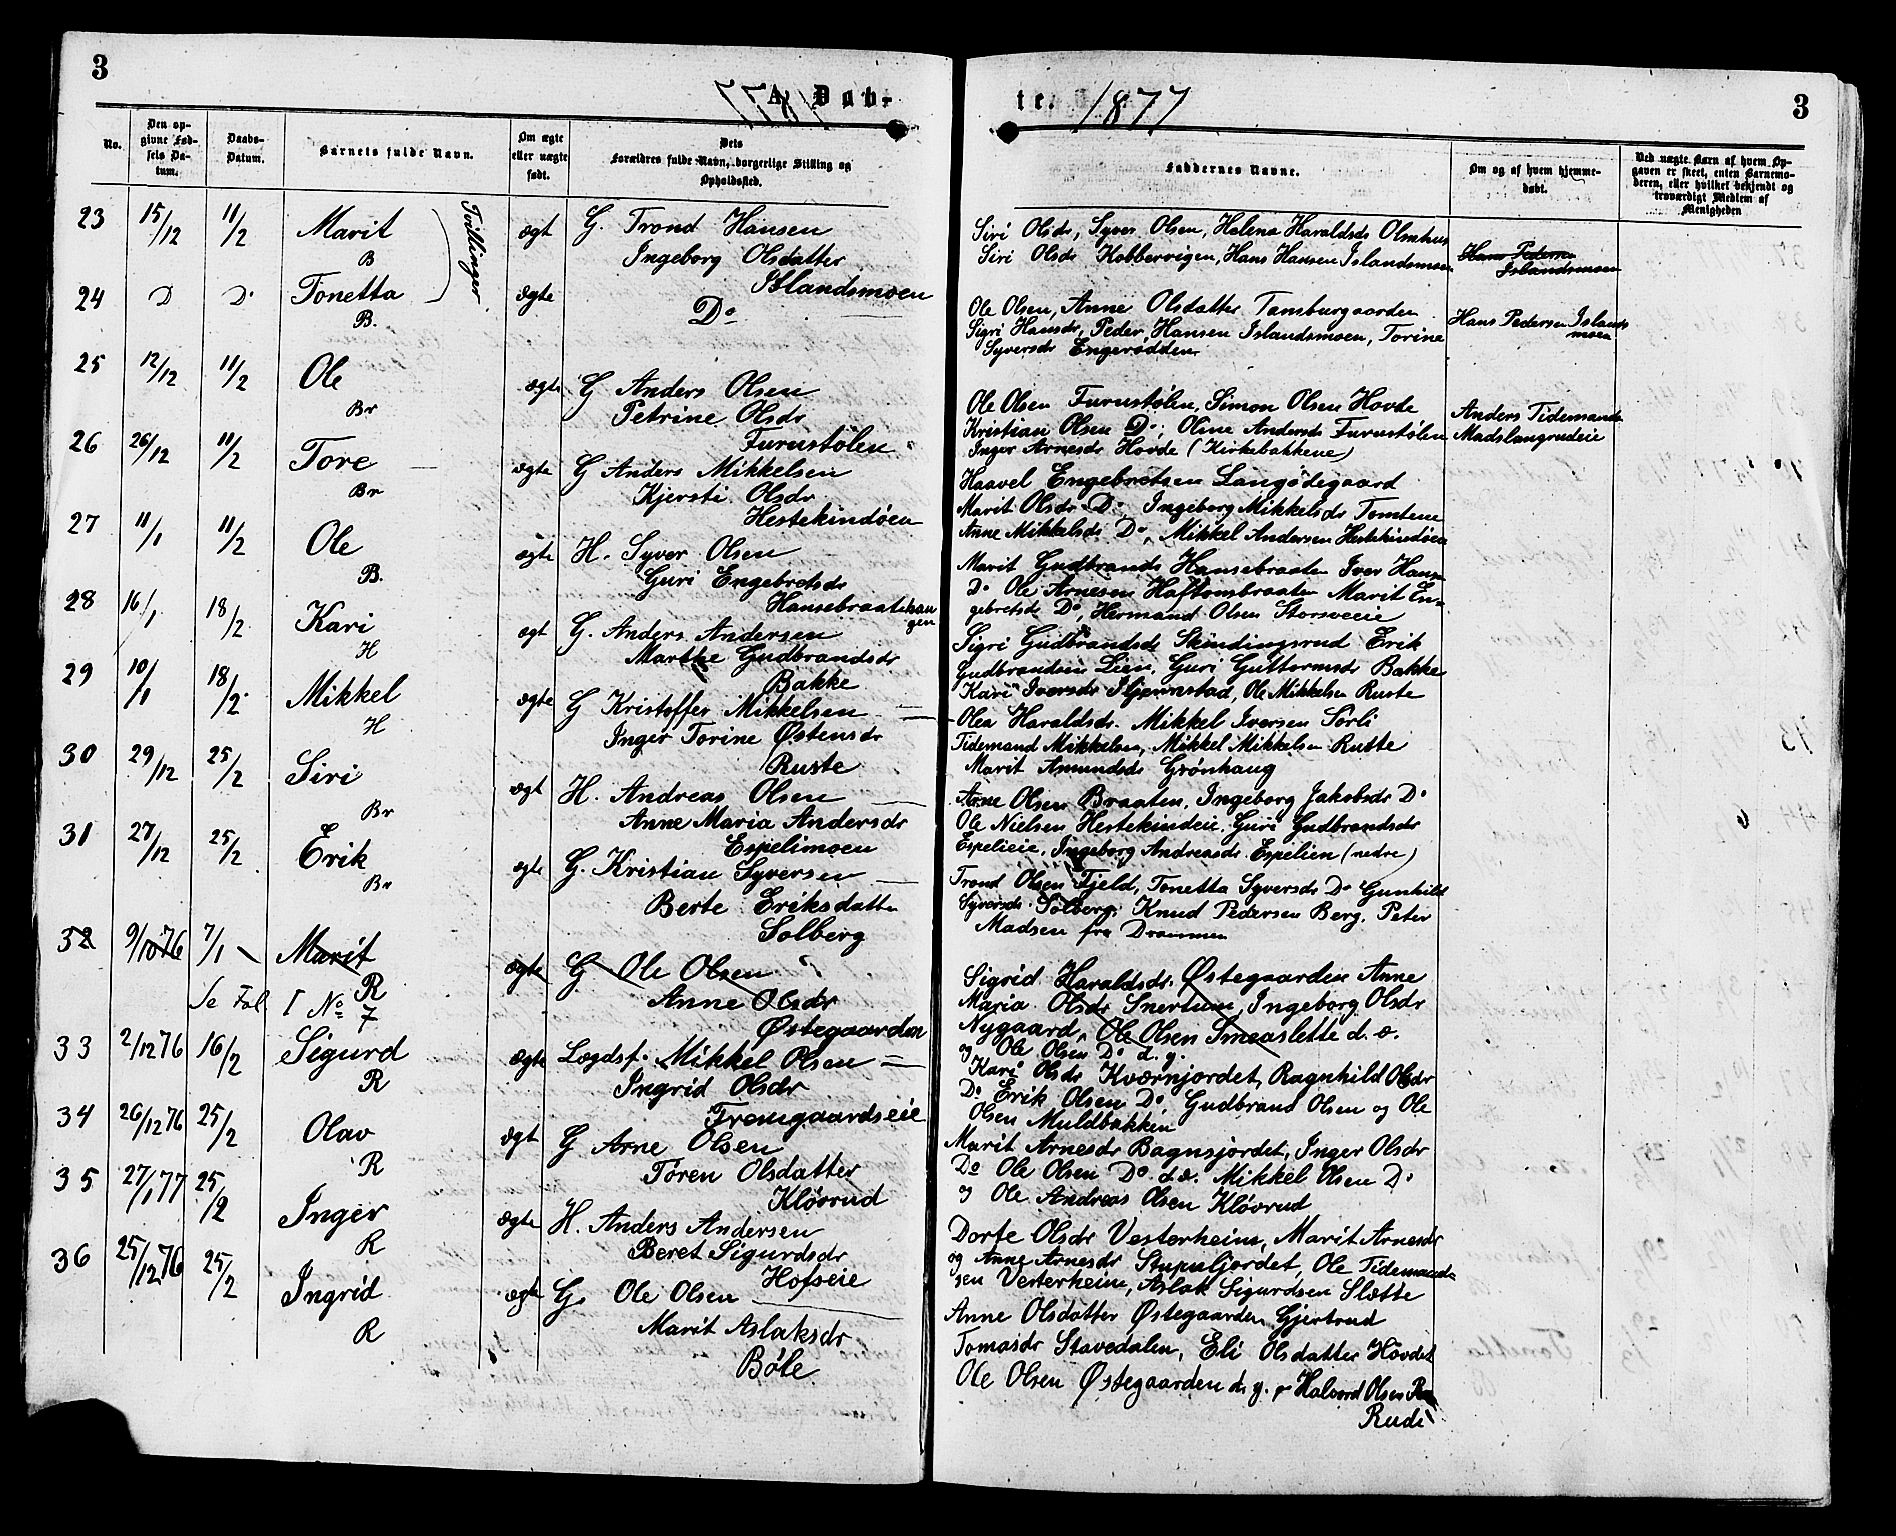 3
1877 A. Døb-
No.
Den op-
givne Fød-
sels Da-
tum.
Daabs-
Datum.
Barnets fulde Navn.
Om ægte
eller uægte
født.
Dets
Forældres fulde Navn, borgerlige Stilling og
Opholdssted.
23 15/12 11/2 Marit Tvillinger ægt G. Trond Hansen
B Ingeborg Olsdatter
Islandsmoen
24 D D° Tonetta ægte D°
B.
25 12/12 11/2 Ole ægte G Anders Olsen
Br Petrine Olsdr
Furustølen
26 26/12 11/2 Tore ægte G Anders Mikkelsen
Br Kjersti Olsdr
Hestekindøen
27 11/1 11/2 Ole ægte H. Syver Olsen
B. Guri Engebretsdr
Hansebraathau
gen
28 16/1 18/2 Kari ægt G. Anders Andersen
H Marthe Gudbrandsdr
Bakke
29 10/1 18/2 Mikkel ægte G Kristoffer Mikkelsen
H Inger Torine Østensdr
Ruste
30 29/12 25/2 Siri ægt H. Andreas Olsen
Br Anne Maria Andersdr
Espelimoen
31 27/12 25/2 Erik ægte G. Kristian Syversen
Br Berte Eriksdatter
Solberg
32 9/10 76 7/1 Marit ægte G Ole Olsen
R Anne Olsdr
Se Fol. I No 7 Østegaarden
33 2/12 76 16/2 Sigurd ægte Lægdsf. Mikkel Olsen
R Ingrid Olsdr
Fremgaardseie
34 26/12 76 25/2 Olav ægt G Arne Olsen
R Toren Olsdatter
Kløvrud
35 27/1 77 25/2 Inger ægte H. Anders Andersen
R Beret Sigurdsdr
Hofseie
36 25/12 76 25/2 Ingrid ægte G. Ole Olsen
R Marit Aslaksdr
Bøle
te. 1877
3
Faddernes Navne.
Om og af hvem hjemme-
døbt.
Ved uægte Barn af hvem Op-
gaven er skeet, enten Barnemo-
deren, eller hvilket bekjendt og
troværdigt Medlem af
Menigheden
Siri Olsdr, Syver Olsen, Helena Haraldsdr Olmhus
Siri Olsdr Kobbervigen, Hans Hansen Islandsmoen
Hans Pedersen
Islandsmoen
Ole Olsen, Anne Olsdatter Tansburgaarden
Sigri Hansdr, Peder Hansen Islandsmoen, Torine
Syversdr Engerodden
Hans Pedersen Islands
moen
Ole Olsen Furustølen, Simon Olsen Hovde
Kristian Olsen D°, Oline Andersdr Furustølen
Inger Arnesdr Hovde (Kirkebakkene)
Anders Tidemands
Madslangrudeie
Haavel Engebretsen Langødegaard
Marit Olsdr D°, Ingeborg Mikkelsdr Tomtene
Anne Mikkelsdr D°, Mikkel Andersen Hestekindøen
Marit Gudbrands Hansebraaten Iver Hansen
D° Ole Arnesen Haftonsbraaten Marit En-
gebretsdr D°, Hermand Olsen Storsveeie
Sigri Gudbrandsdr Skindingsrud Erik
Gudbrandsen Lien, Guri Guttormsdr Bakke
Kari Iversdr Stjernstad, Ole Mikkelsen Ruste
Olea Haraldsdr. Mikkel Iversen Sørli
Tidemand Mikkelsen, Mikkel Mikkelsen Ruste
Marit Amundsdr Grønhaug
Arne Olsen Braaten, Ingeborg Jakobsdr D°
Ole Nielsen Hestekindeie, Guri Gudbrandsdr
Espelieie, Ingeborg Andreasdr Espelien (nedre)
Trond Olsen Fjeld, Tonetta Syversdr D° Gunhild
Syversdr Solberg, Knud Pedersen Berg, Peter
Madsen fra Drammen
Sigrid Haraldsdr. Østegaarden Anne
Maria Olsdr Snertum, Ingeborg Olsdr
Nygaard, Ole Olsen Smeaslette d. æ.
og Ole Olsen D° d. y.
Kari Olsdr Kværnjordet, Ragnhild Olsdr
D° Erik Olsen D°, Gudbrand Olsen og Ole
Olsen Muldbakken
Marit Arnesdr Bagnsjordet, Inger Olsdr
D° Ole Olsen D° d.æ. Mikkel Olsen D°
og Ole Andreas Olsen Kløvrud
Dorte Olsdr Vesterheim, Marit Arnesdr
og Anne Arnesdr Stupuljordet, Ole Tidemand-
sen Vesterheim, Aslak Sigurdsen Slætte
Anne Olsdatter Østegaarden Gjertrud
Tomasdr Stavedalen, Eli Olsdatter Hovdet
Ole Olsen Østegaarden d. y. Halvord Olsen
Rudi